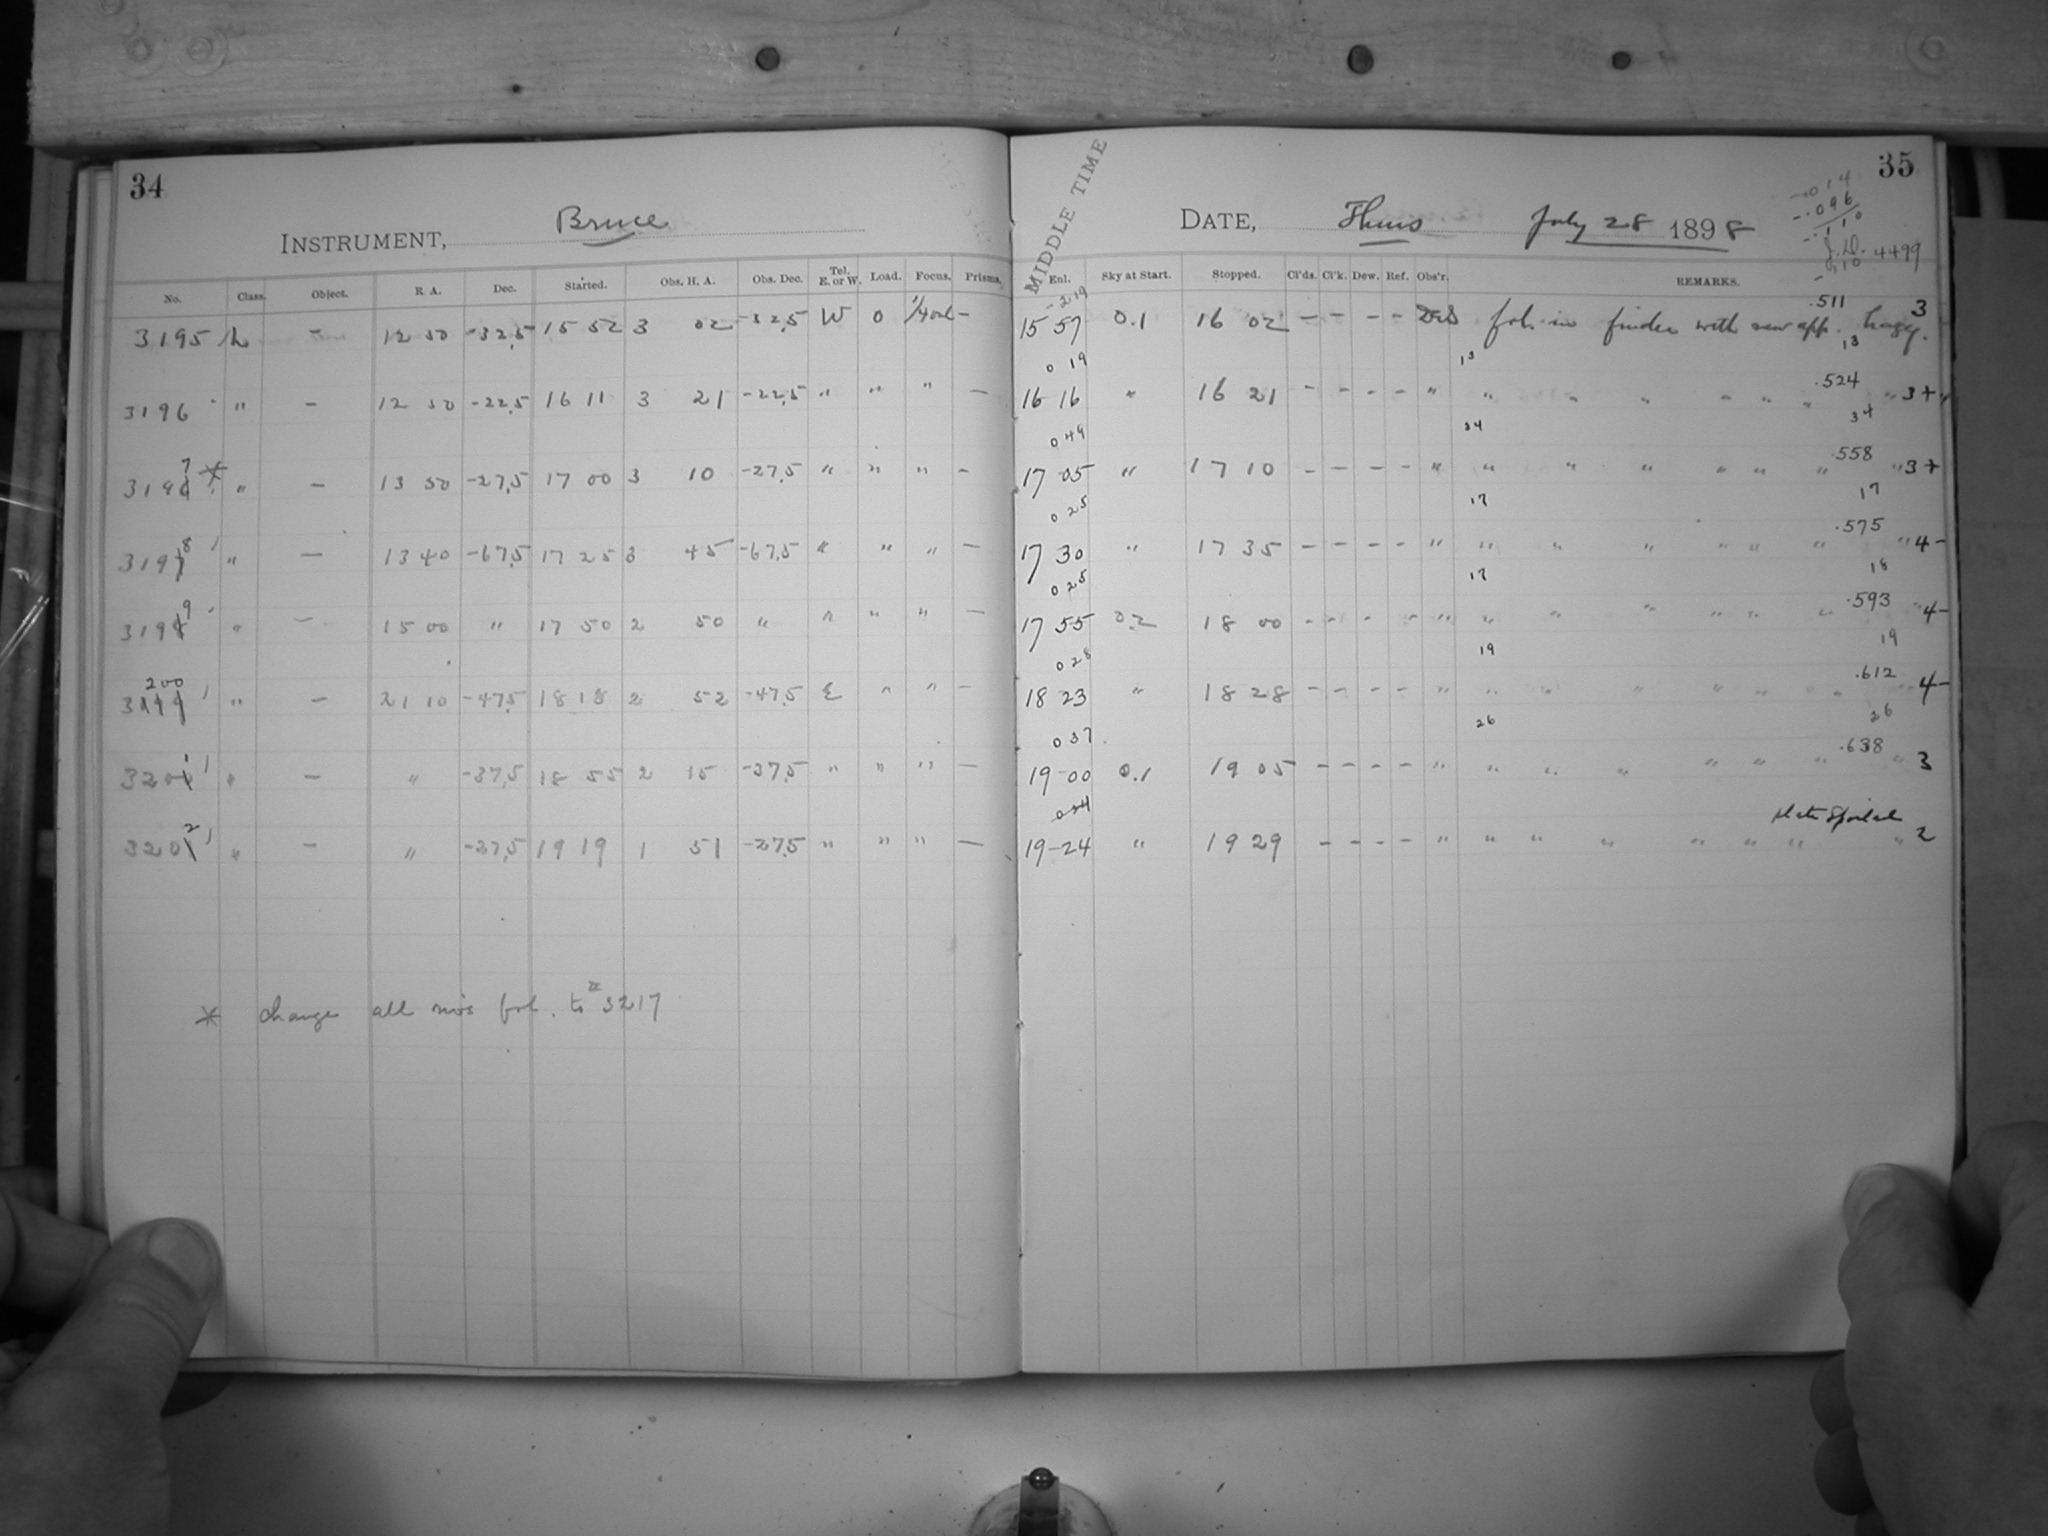 34
INSTRUMENT, Bruce
No. Class. Object. R. A. Dec. Started. Obs. H. A. Obs. Dec. Tel. E. or W. Load. Focus. Prisms.
3195 L 12 50 -32,5 15 52 3 02 -32,5 W 0 -
3196 " - 12 50 -22,5 16 11 3 21 -22,5 " " " -
3197 * " - 13 50 -27,5 17 00 3 10 -27,5 " " " -
3198 " - 13 40 -67,5 17 25 3 45 -67,5 " " " -
3199 " - 15 00 " 17 50 2 50 " " " " -
3200 " - 21 10 -47,5 18 18 2 52 -47,5 E " " -
3201 " - " -37,5 18 55 2 15 -37,5 " " " -
3202 " - " -27,5 19 19 1 51 -27,5 " " " -
* change all no's fol. to # 3217
35
MIDDLE TIME
DATE, Thurs July 28 1898
-.014
-.096
-.110
J.D. 4499
Enl. Sky at Start. Stopped. Cl'ds. Cl'k. Dew. Ref. Obs'r. REMARKS.
-219 .511
15 57 0.1 16 02 - - - - fol. in finder with new app. 3
0 19 13 13
.524
16 16 " 16 21 - - - - " " " " " " " " 3+ "
0 49 34 34
.558
17 05 " 17 10 - - - - " " " " " " " " 3+
0 25 17 17
.575
17 30 " 17 35 - - - - " " " " " " " " 4-
0 25 17 18
.593
17 55 0.2 18 00 - - - - " " " " " " " " 4-
0 28 19 19
.612
18 23 " 18 28 - - - - " " " " " " " " 4-
0 37 26 26
.638
19-00 0.1 19 05 - - - - " " " " " " " " 3
Plate Spoiled
19-24 " 19 29 - - - - " " " " " " " " 2